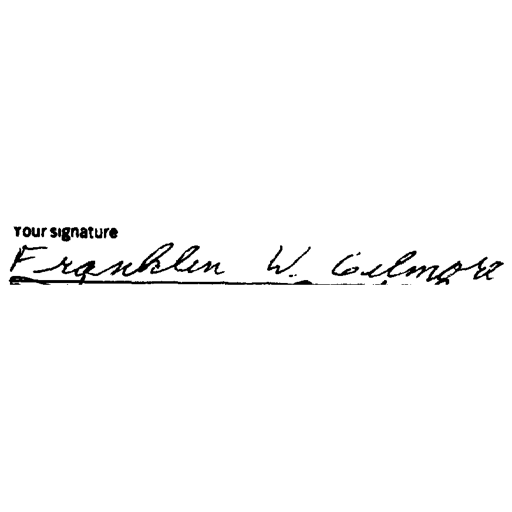 Your signature
Franklin W. Gilmore